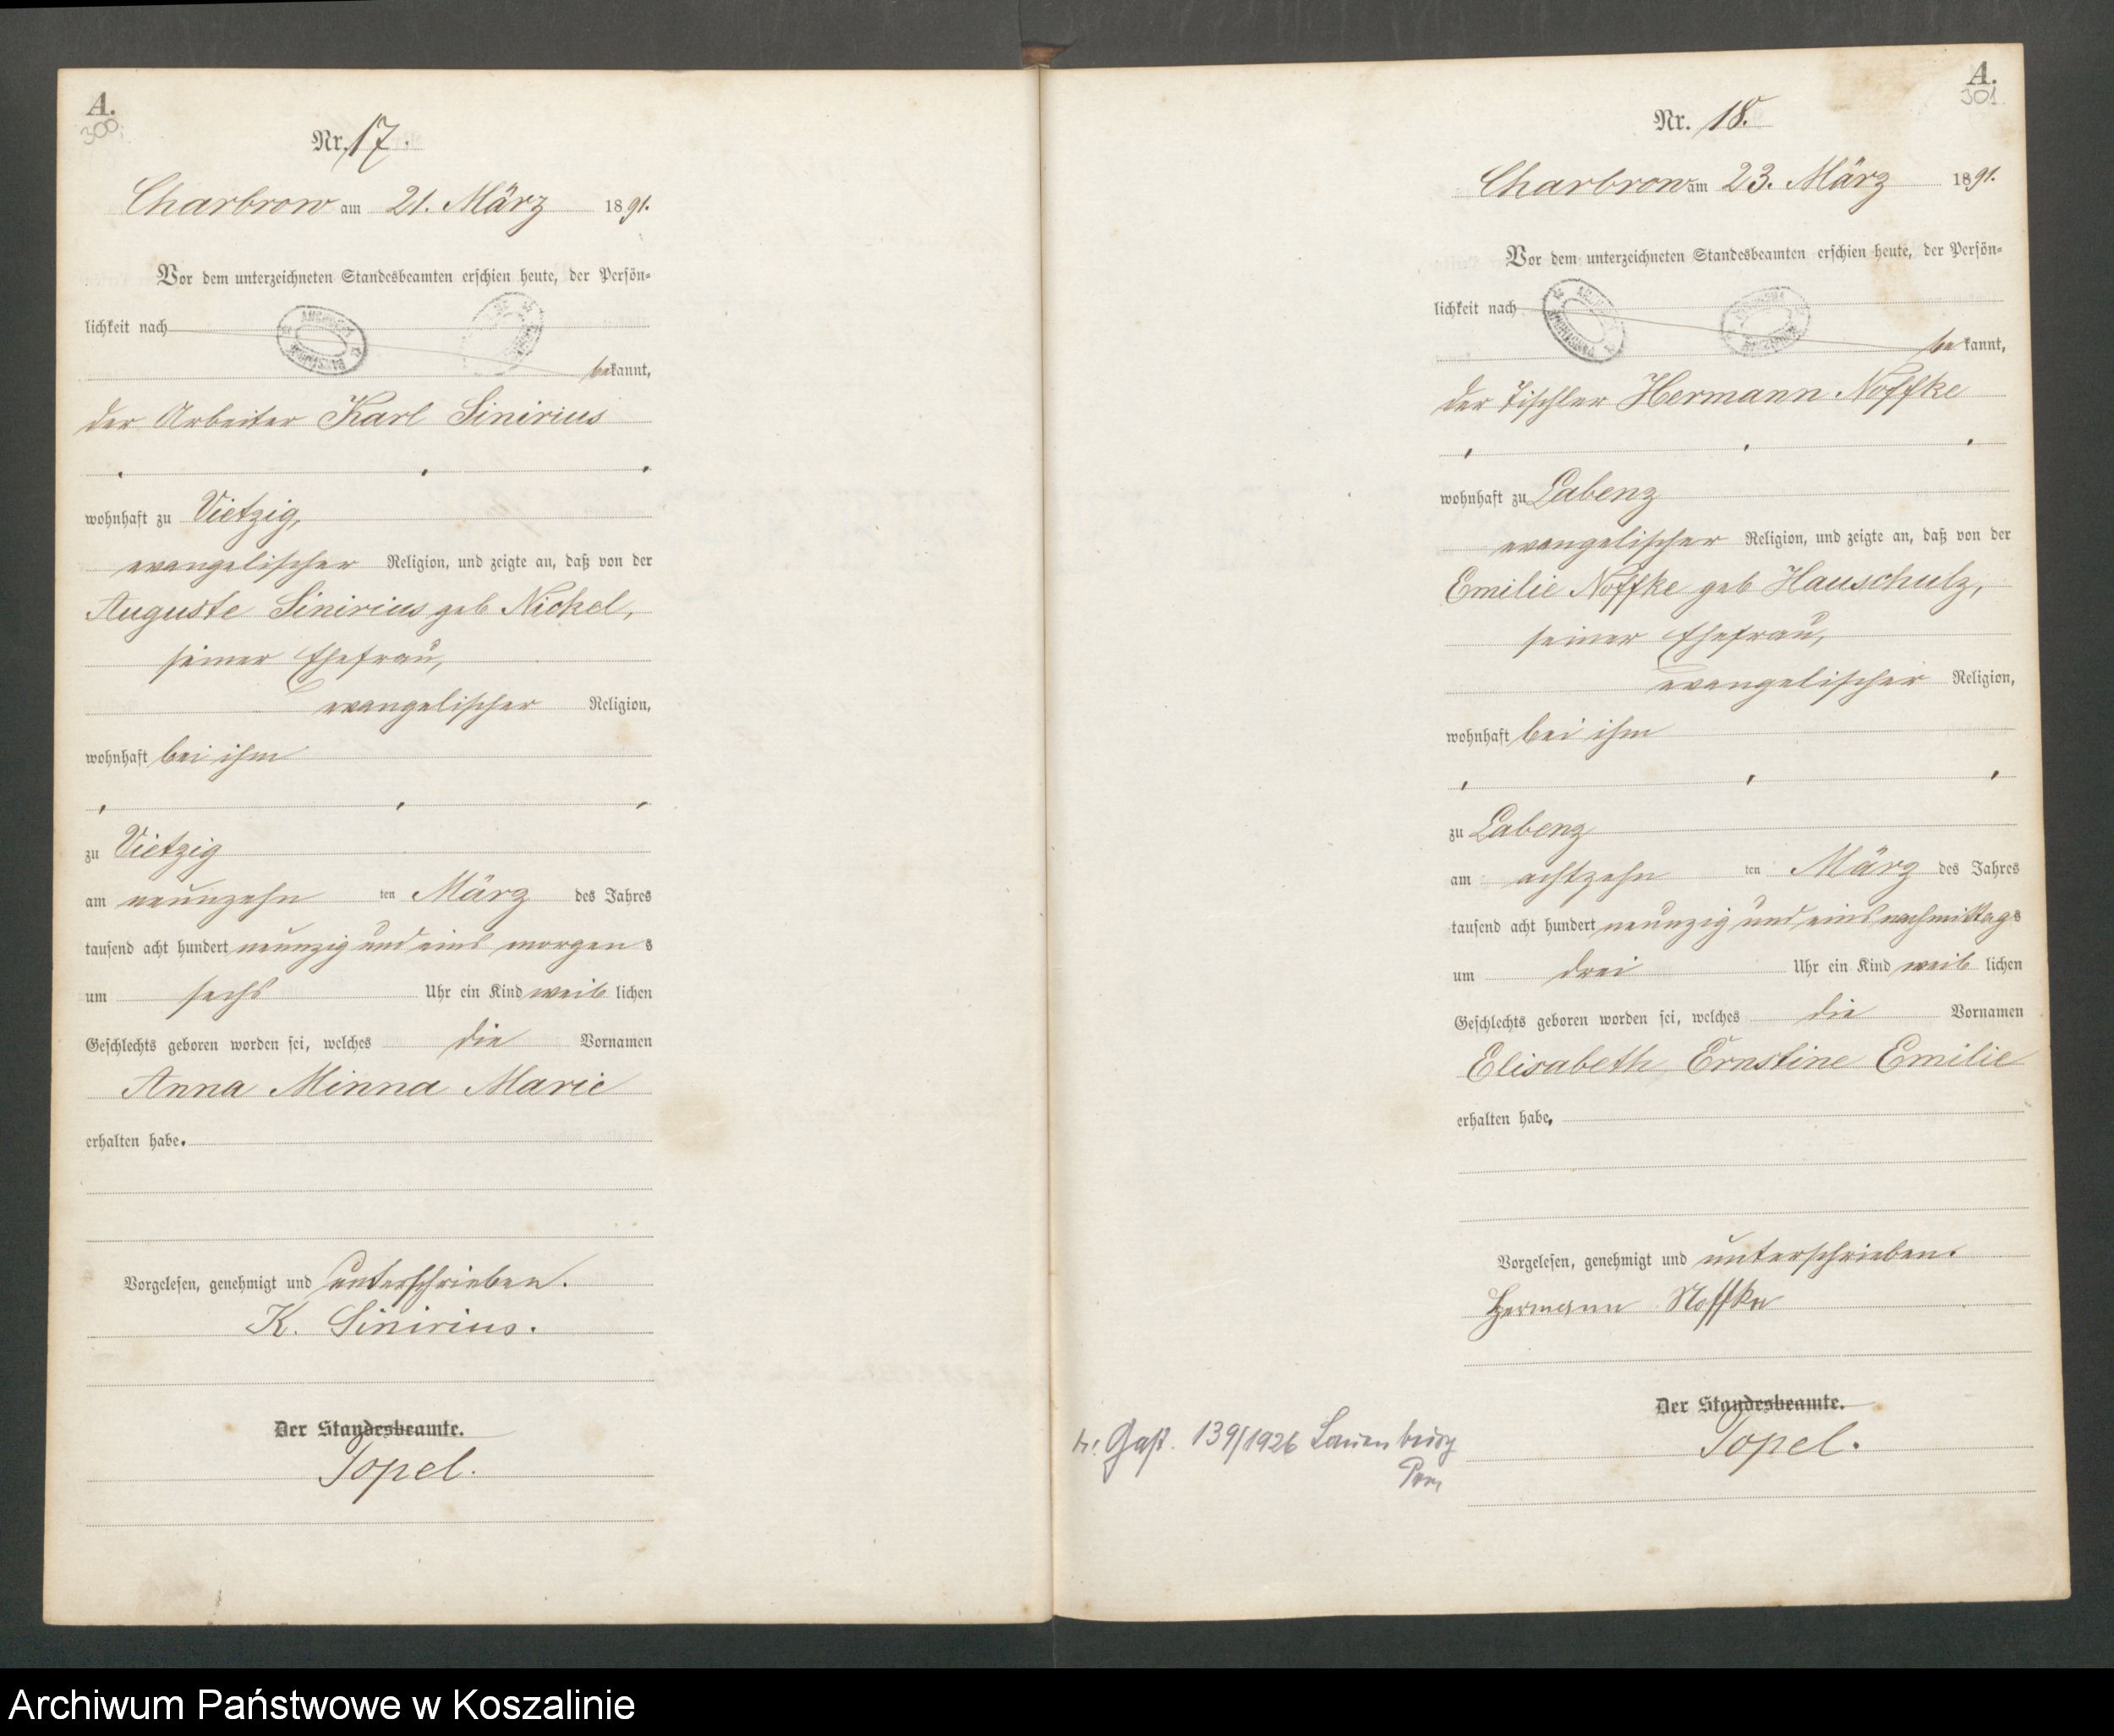 A.
300.
Nr. 17.
Charbrow am 21. März 1891.
Vor dem unterzeichneten Standesbeamten erschien heute, der Persön-
lichkeit nach
bekannt,
der Arbeiter Karl Sinirius
wohnhaft zu Vietzig,
evangelischer Religion, und zeigte an, daß von der
Auguste Sinirius geb Nickel,
seiner Ehefrau,
evangelischer Religion,
wohnhaft bei ihm
zu Vietzig
am neunzehn ten März des Jahres
tausend acht hundert neunzig und eins morgens
um sechs Uhr ein Kind weiblichen
Geschlechts geboren worden sei, welches die Vornamen
Anna Minna Marie
erhalten habe.
Vorgelesen, genehmigt und unterschrieben.
K. Sinirius.
Der Standesbeamte.
Topel.
A.
301
Nr. 18.
Charbrow am 23. März 1891.
Vor dem unterzeichneten Standesbeamten erschien heute, der Persön-
lichkeit nach
bekannt,
der Tischler Hermann Noffke
wohnhaft zu Labenz
evangelischer Religion, und zeigte an, daß von der
Emilie Noffke geb Hauschulz,
seiner Ehefrau,
evangelischer Religion,
wohnhaft bei ihm
zu Labenz
am achtzehn ten März des Jahres
tausend acht hundert neunzig und eins nachmittags
um drei Uhr ein Kind weiblichen
Geschlechts geboren worden sei, welches die Vornamen
Elisabeth Ernstine Emilie
erhalten habe.
Vorgelesen, genehmigt und unterschrieben.
Hermann Noffke
Der Standesbeamte.
Topel.
139/1926 Lauenburg
Pom,
Archiwum Państwowe w Koszalinie